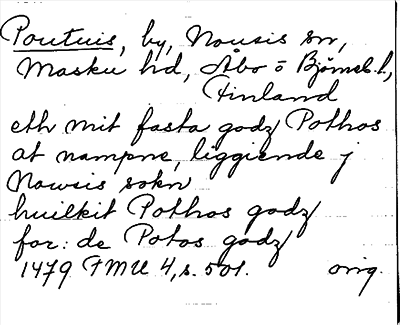 Poutuis, by, Nousis sn,
Masku hd, Åbo o Björneb. l,
Finland
eth mit fasta godz Pothos
at nampne, liggiende j
Nowsis sokn
huilkit Pothos godz
for: de Potos godz
1479 FMU 4, s. 501. orig.